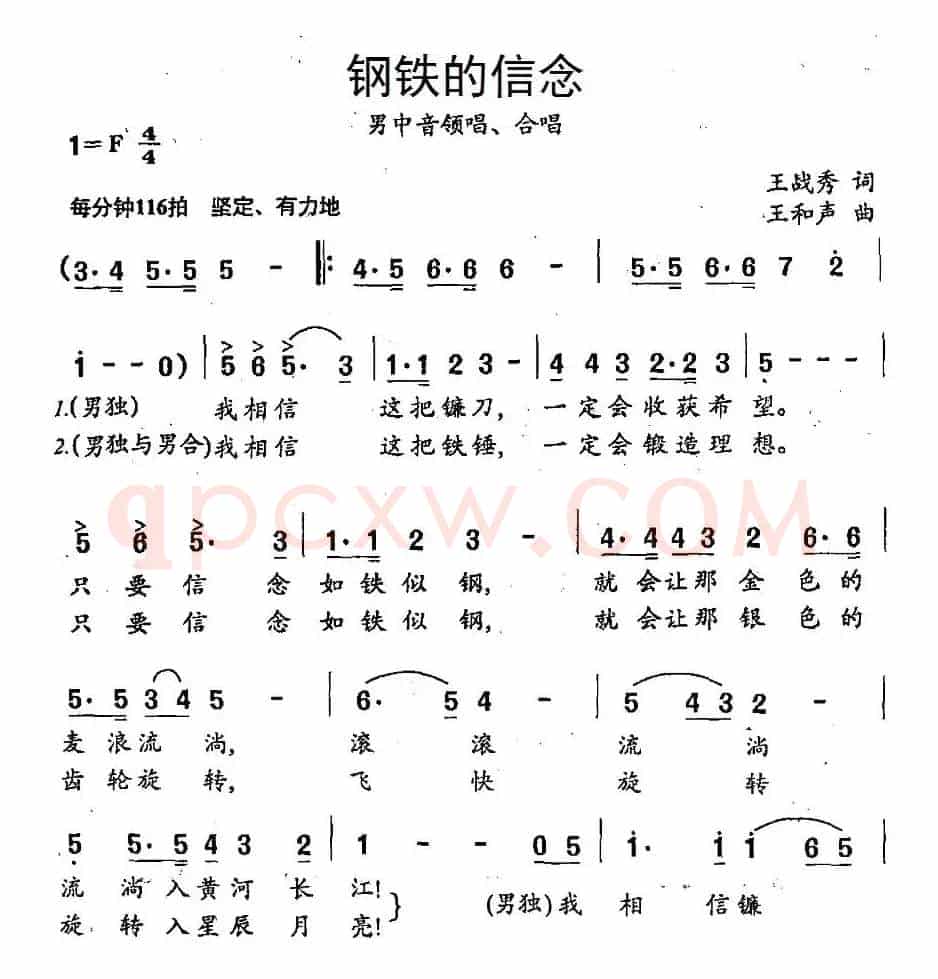 钢铁的信念
男中音领唱、合唱
1=F 4/4
王战秀 词
每分钟116拍 坚定、有力地
王和声 曲
(3·4 5·5 5 - |: 4·5 6·6 6 - | 5·5 6·6 7 2̇ |
1̇ - - 0) | 5 6 5· 3 | 1·1 2 3 - | 4 4 3 2·2 3 | 5̣ - - - |
1.(男独) 我相信 这把镰刀, 一定会收获希望。
2.(男独与男合)我相信 这把铁锤, 一定会锻造理想。
qpcxw.COM
5 6 5· 3 | 1·1 2 3 - | 4·4 4 3 2 6·6 |
只要信念如铁似钢, 就会让那金色的
只要信念如铁似钢, 就会让那银色的
5·5 3 4 5 - | 6· 5 4 - | 5 4 3 2 - |
麦浪流淌, 滚滚流淌
齿轮旋转, 飞快旋转
5̣ 5·5 4 3 2 | 1 - - 0 5 | 1̇· 1̇ 1̇ 6 5 |
流淌入黄河长江! (男独)我相信镰
旋转入星辰月亮!